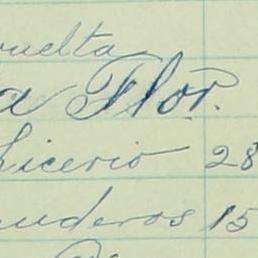 vuelta
a Flor.
Licerio 28
uderos 15